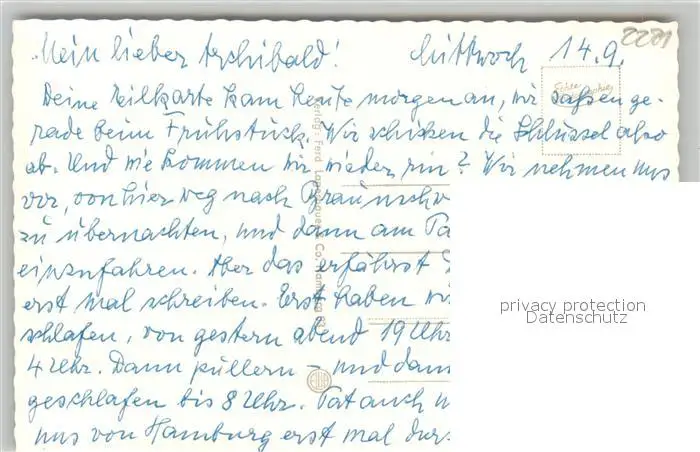 2281
Mein lieber Archibald! Mittwoch 14.9.
Deine Eilkarte kam heute morgen an, wir saßen ge-
rade beim Frühstück. Wir schicken die Schlüssel also
ab. Und wie kommen wir wieder rin? Wir nehmen uns
vor, von hier weg nach Braunschw
zu übernachten, und dann am Ta
einzufahren. Aber das erfährst
erst mal schreiben. Erst haben wi
schlafen, von gestern abend 19 Uhr
4 Uhr. Dann pullern – und dann
geschlafen bis 8 Uhr. Tat auch
uns von Hamburg erst mal
Echte
Verlag: Ferd. & Co. Hamburg
privacy protection
Datenschutz